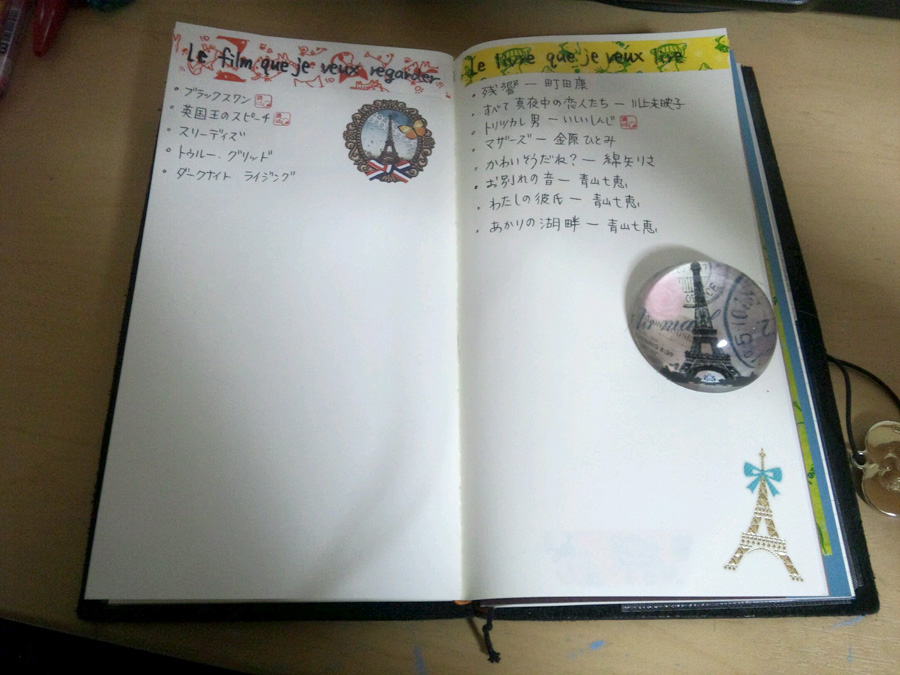 Le film que je veux regarder
・ブラックスワン 済
・英国王のスピーチ 済
・スリーデイズ
・トゥルー・グリッド
・ダークナイト ライジング
le livre que je veux lire
・残響 ― 町田康
・すべて真夜中の恋人たち ― 川上未映子
・トリツカレ男 ― いしいしんじ 済
・マザーズ ― 金原ひとみ
・かわいそうだね? ― 綿矢りさ
・お別れの音 ― 青山七恵
・わたしの彼氏 ― 青山七恵
・あかりの湖畔 ― 青山七恵